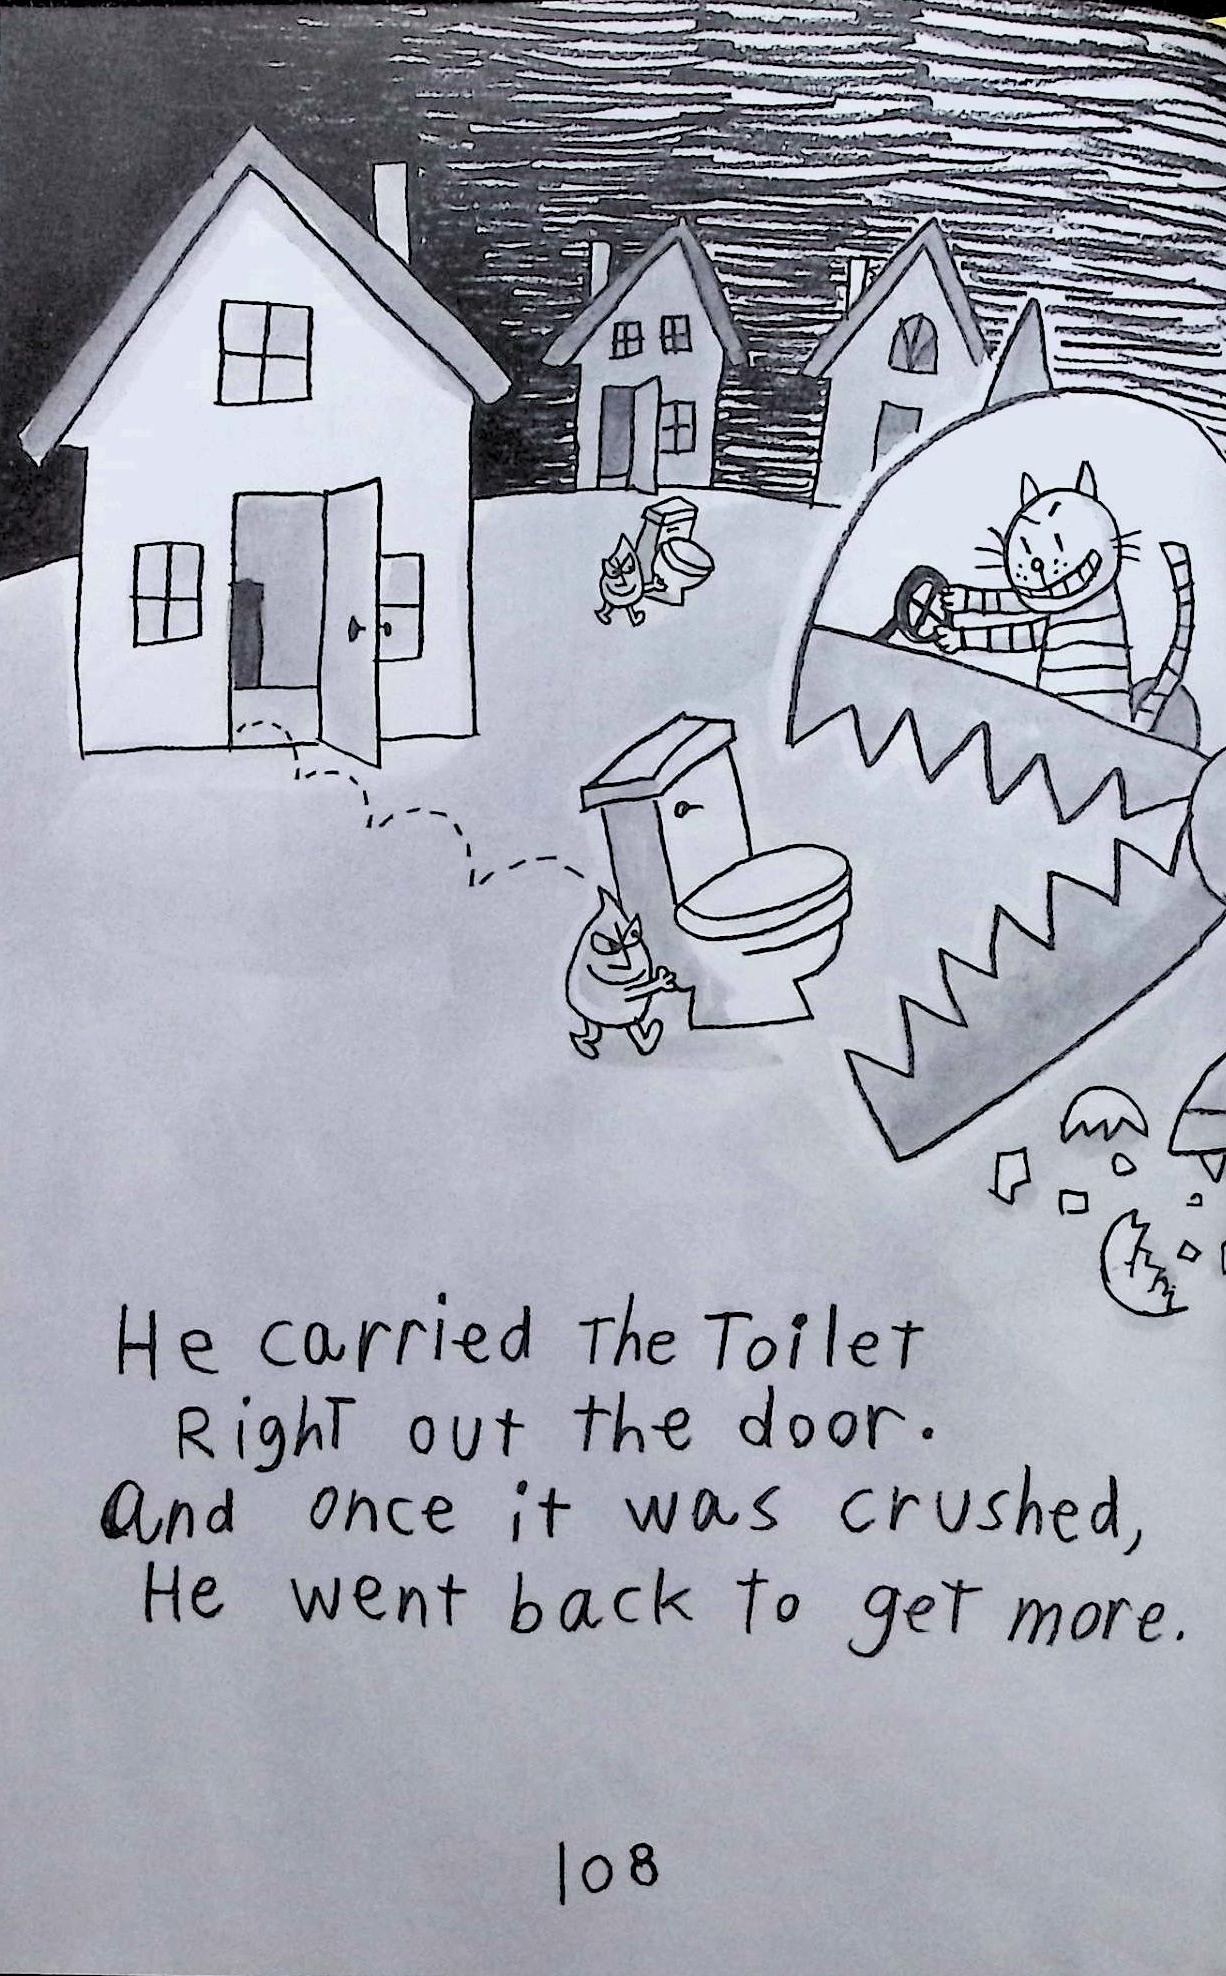 He carried The Toilet
RighT out the door.
and once it was crushed,
He went back To geT more.
108